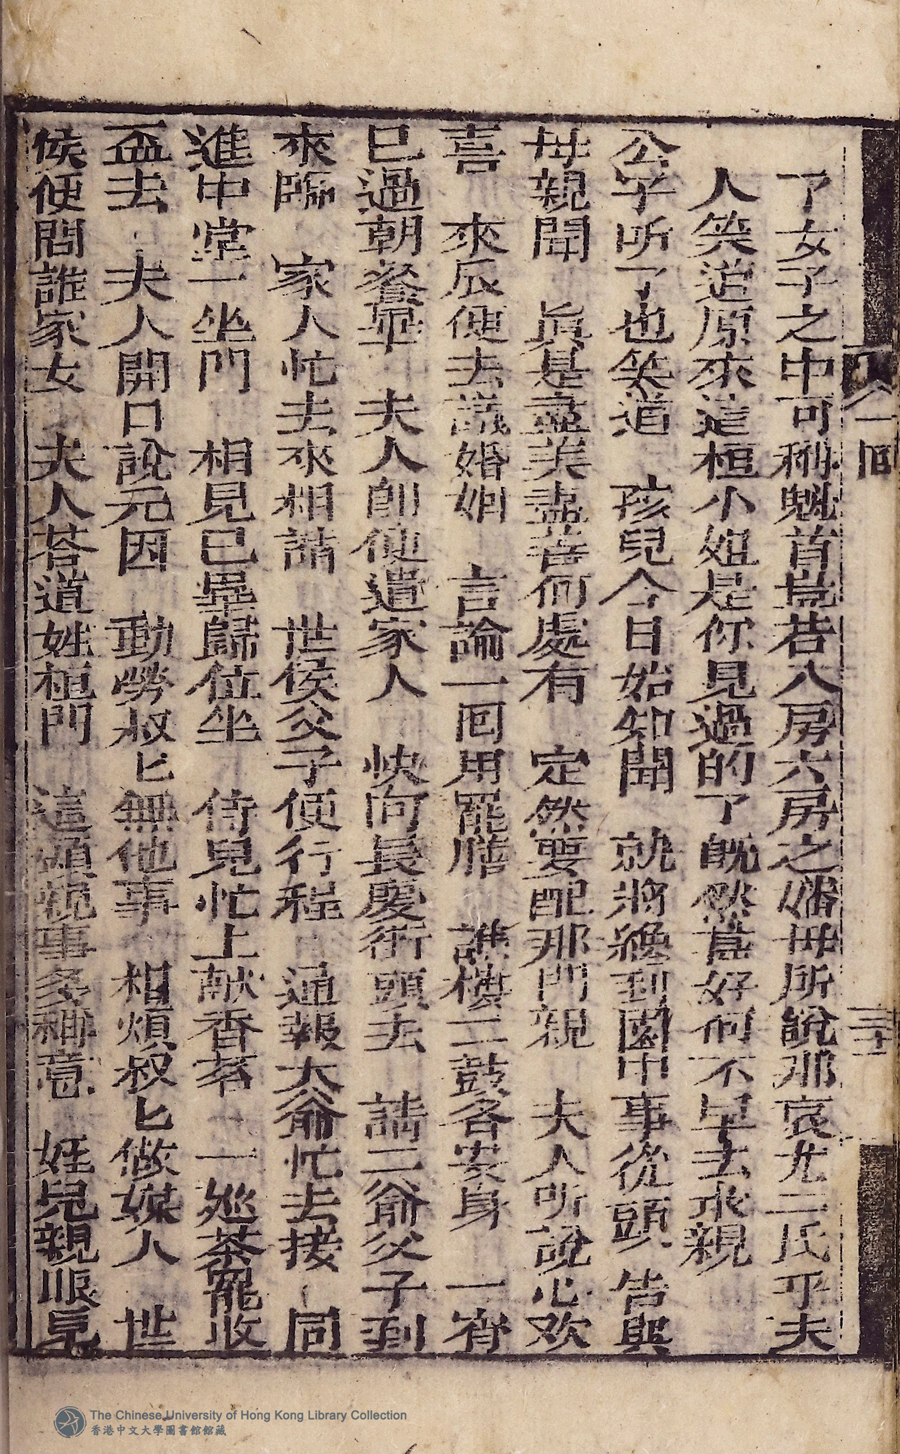 了女子之中可稱魁首豈若八房六房之嬸母所說那袁尤二氏乎夫
人笑道原來這桓小姐是你見過的了既然甚好何不早去求親
公子听了也笑道 孩兒今日始知聞 就將纔到園中事從頭告與
母親聞 眞是盡美盡善何處有 定然要配那門親 夫人听說心欢
喜 來辰便去議婚姻 言論一囘用罷膳 譙樓二鼓各安身 一宵
已過朝餐畢 夫人即便遣家人 快向長慶街頭去 請二爺父子到
來臨 家人忙去來相請 世侯父子便行程 通報大爺忙去接 同
進中堂一坐門 相見已畢歸位坐 侍兒忙上献香茗 一廵茶罷收
盃去 夫人開口說元因 動勞叔匕無他事 相煩叔匕做媒人 世
侯便問誰家女 夫人荅道姓桓門 這頭親事多稱意 姪兒親眼見
一囘
三十
The Chinese University of Hong Kong Library Collection
香港中文大學圖書館館藏